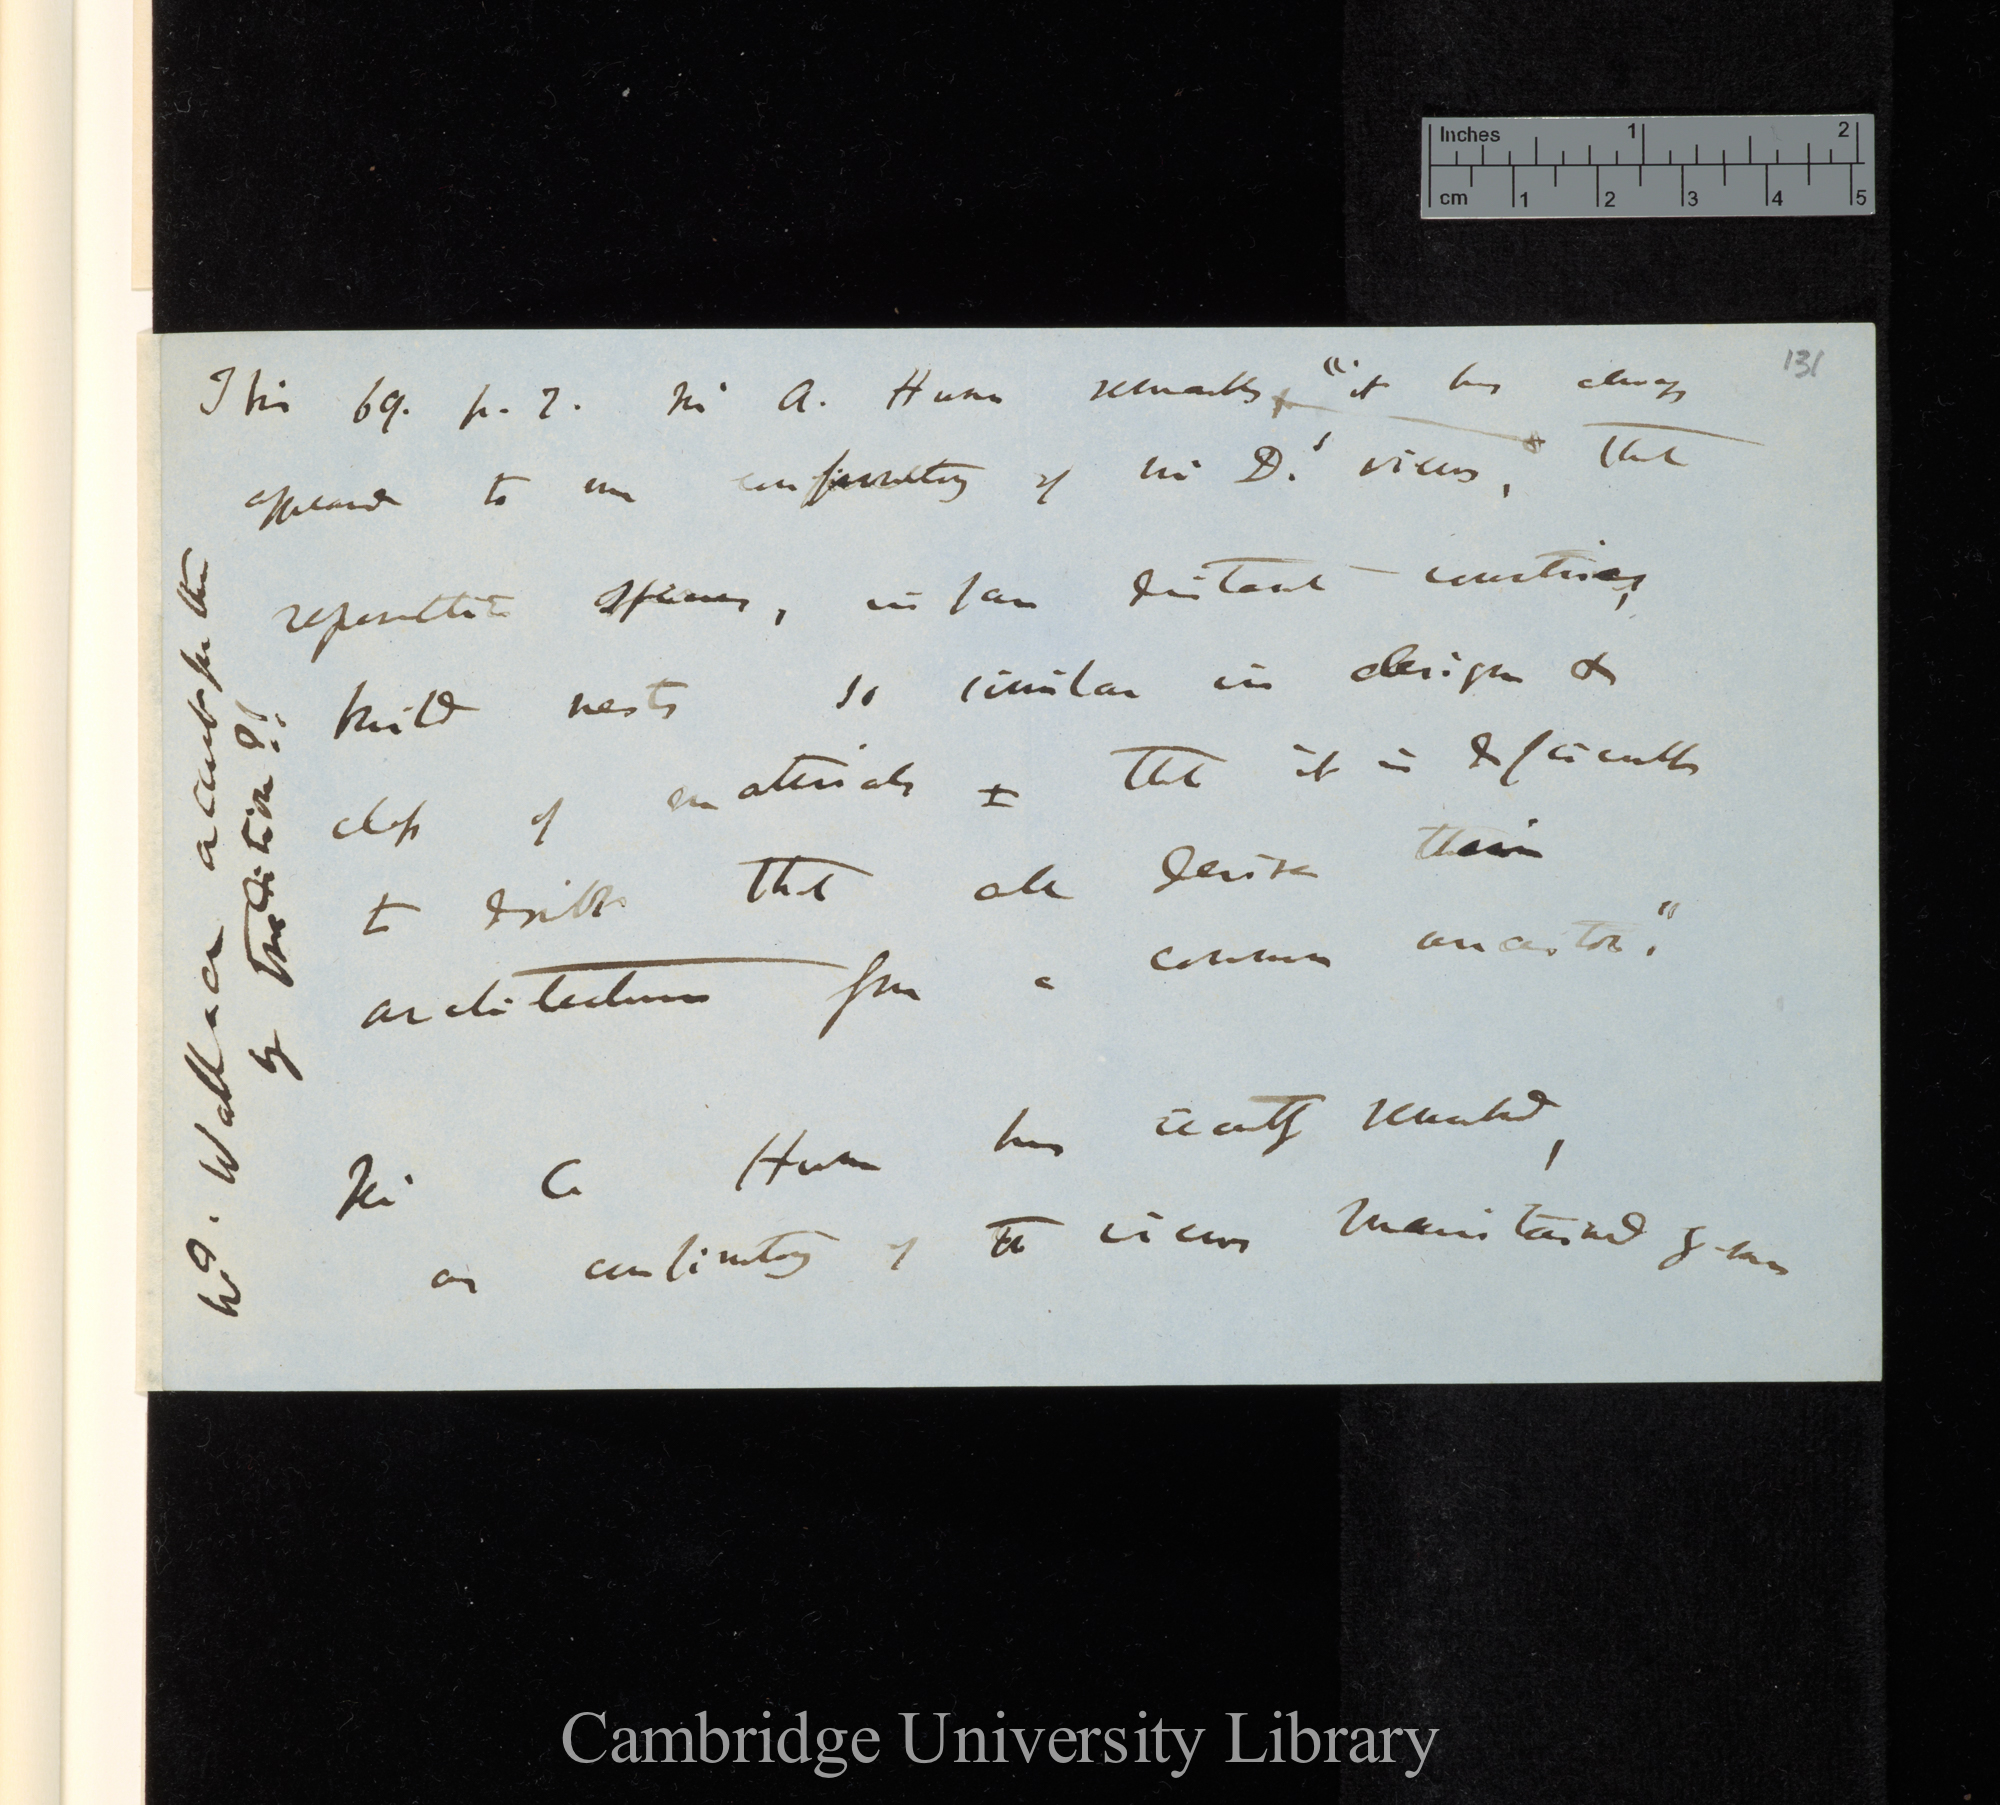 Inches 1 2
cm 1 2 3 4 5
131
Ibis 69. p. 2. Mr A. Hume remarks, "it has always
appeared to me confirmatory of Mr D.'s views, that
representative species, in far distant countries,
build nests so similar in design &
of materials ± that it is difficult
to doubt that all derive their
architecture from a common ancestor."
Mr A Hume has recently remarked,
as confirmatory of the views maintained by
Wd. Wallace account for this
by Tradition?!
Cambridge University Library